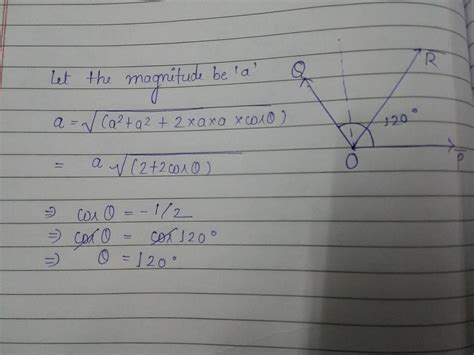 Let the magnitude be 'a'
a = √(a²+a² + 2×a×a×cosθ)
= a √(2+2cosθ)
⇒ cosθ = -1/2
⇒ cosθ = cos120°
⇒ θ = 120°
Q
R
120°
O
P